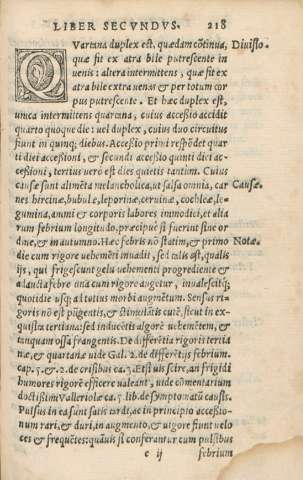 LIBER SECVNDVS. 218
QVartana duplex est, quædam cõtinua, Diuisio.
quæ fit ex atra bile putrescente in
uenis: altera intermittens, quæ fit ex
atra bile extra uenas & per totum cor
pus putrescente. Et hæc duplex est,
unica intermittens quartana, cuius accessio accidit
quarto quoque die: uel duplex, cuius duo circuitus
fiunt in quinq; diebus. Accessio primi respõdet quar
ti diei accessioni, & secundi accessio quinti diei ac-
cessioni, tertius uerò est dies quietis tantùm. Cuius
causæ sunt alimẽta melancholica, ut salsa omnia, car Causæ.
nes hircinæ, bubulæ, leporinæ, ceruinæ, cochleæ, le-
gumina, ammi & corporis labores immodici, et alia
rum febrium longitudo, præcipuè si fuerint sine or
dine, & in autumno. Hæc febris nõ statim, & primo Notæ.
die cum rigore uehemẽti inuadit, sed talis est, qualis
ijs, qui frigescunt gelu uehementi progrediente &
adaucta febre unà cum rigore augetur, inualescitq́;
quotidie usq; ad totius morbi augmẽtum. Sensus ri-
goris nõ est pũgentis, & stimulãtis cutẽ, sicut in ex-
quisita tertiana: sed inducẽtis algorẽ uehemẽtem, &
tanquam ossa frangentis. De differẽtia rigoris tertia
næ, & quartanæ uide Gal. 2. de differẽtijs febrium.
cap. 5. & 2. de crisibus ca. 3. Et si uis scire, an frigidi
humores rigorẽ efficere ualeant, uide cõmentarium
doctissimi Valleriolæ ca. 5. lib. de symptomatũ causis.
Pulsus in ea sunt satis tardi, ac in principio accessio-
num rari, & duri, in augmento, & uigore fiunt velo
ces & frequẽtes: quãuis si conferantur cum pulsibus
e ij febrium